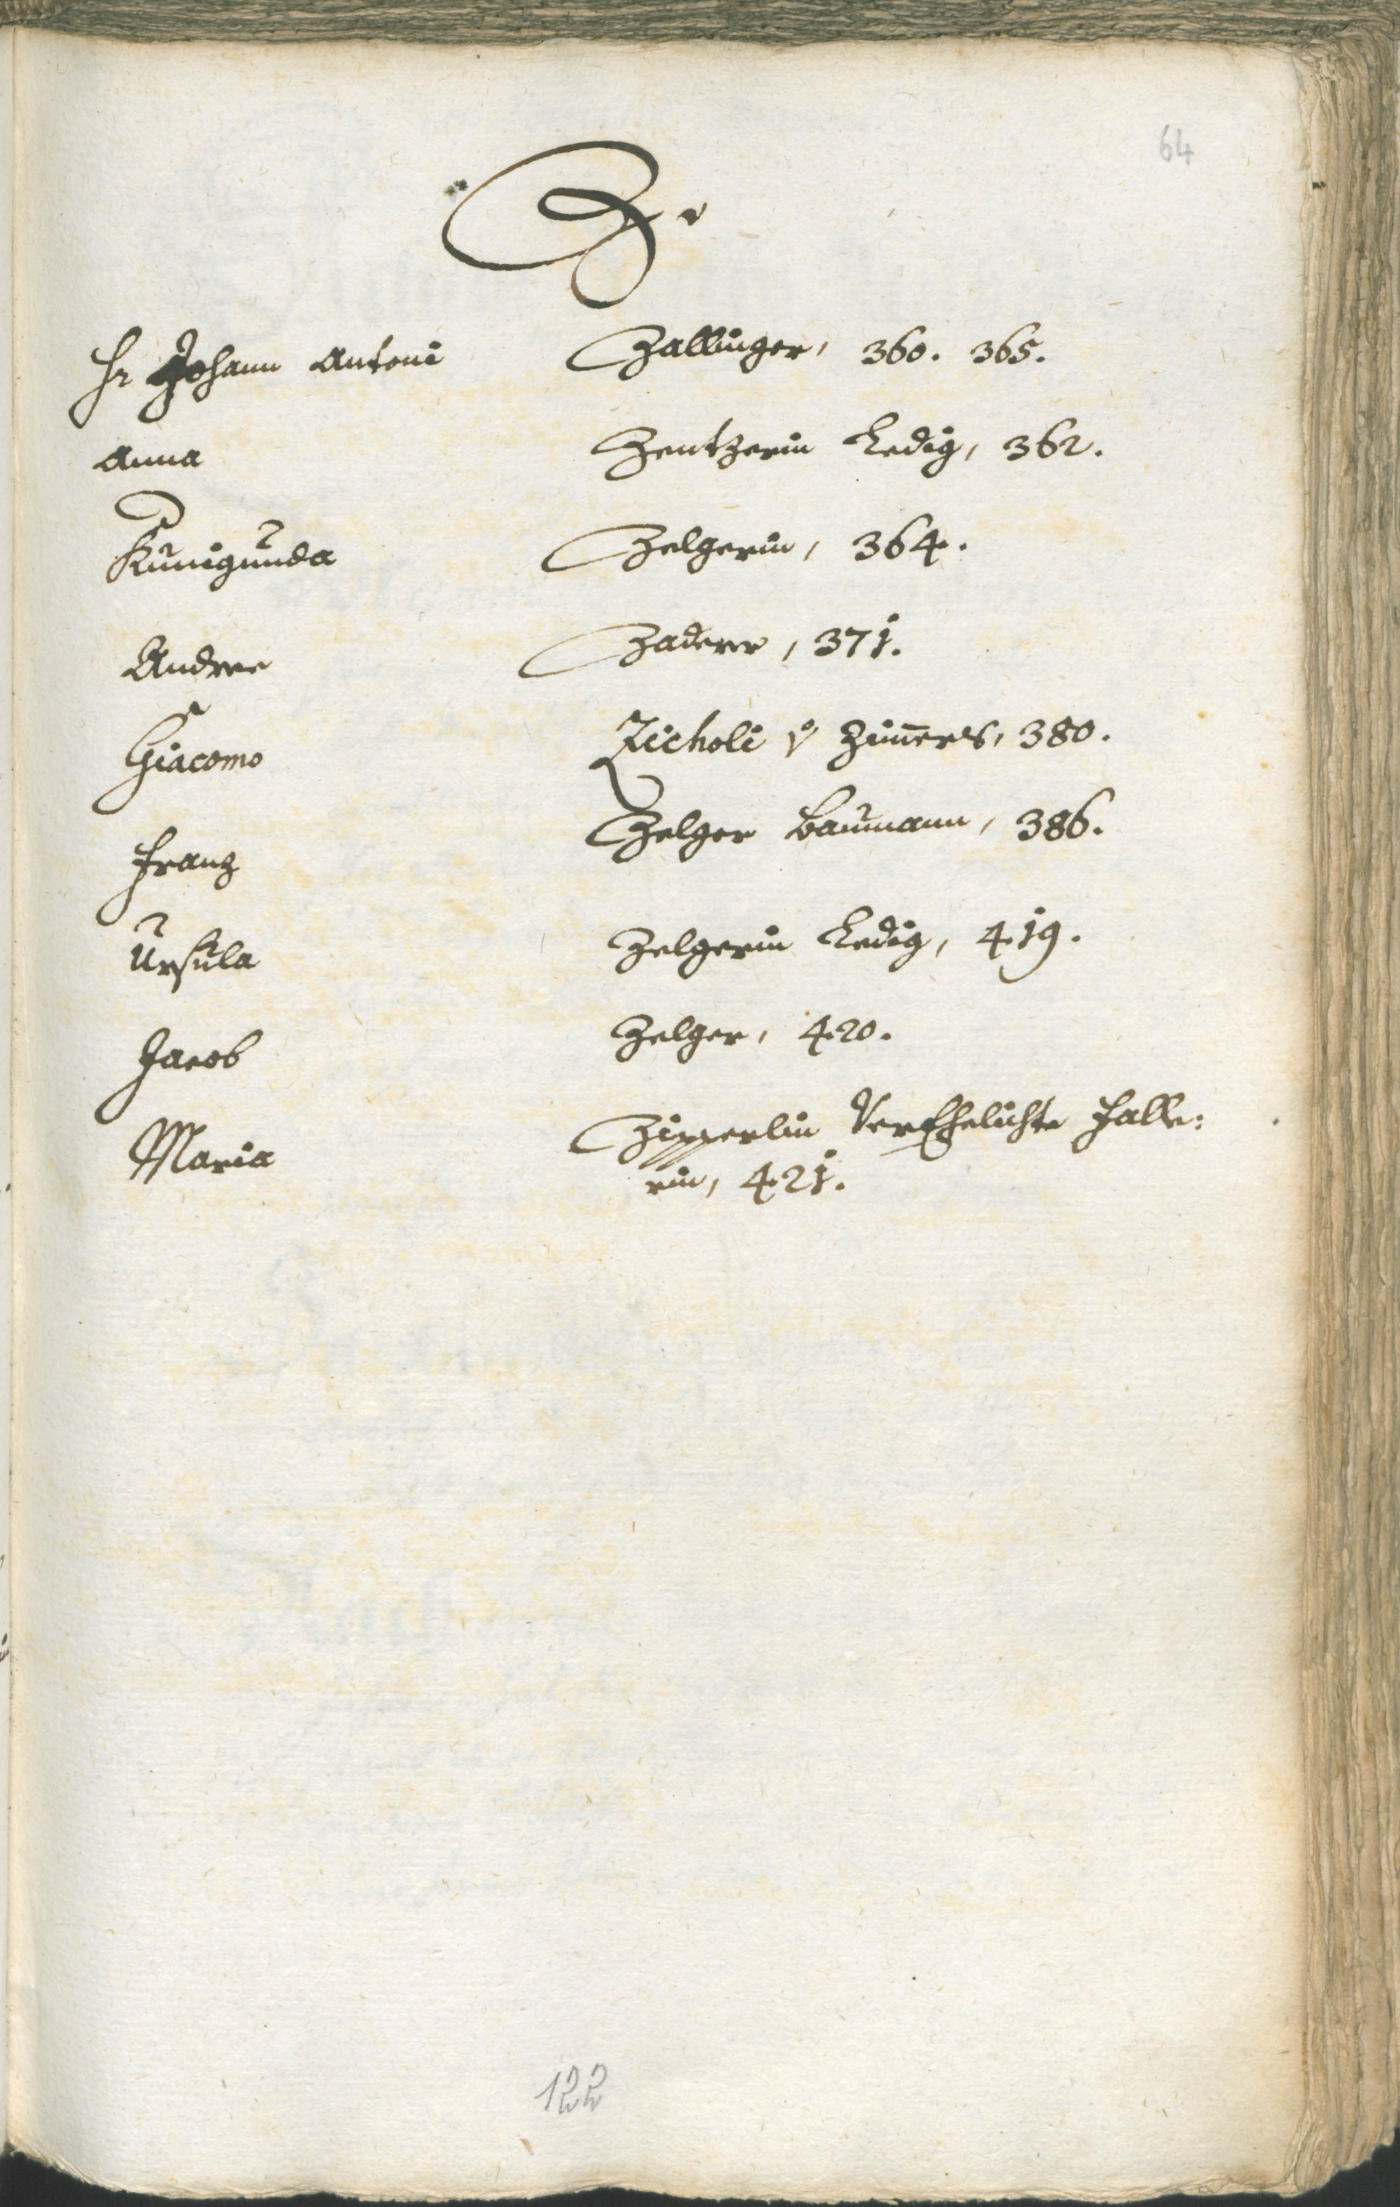 64
Z.
Hr Johann Antoni Zallinger, 360. 365.
Anna Zentzerin Ledig, 362.
Kunigunda Zelgerin, 364.
Andree Zaderer, 371.
Giacomo Zicholi Zim̄ers, 380.
Franz Zelger Baumann, 386.
Ursula Zelgerin Ledig, 419.
Jacob Zelger, 420.
Maria Zipperlin VerEhelichte Halle:
rin, 421.
122